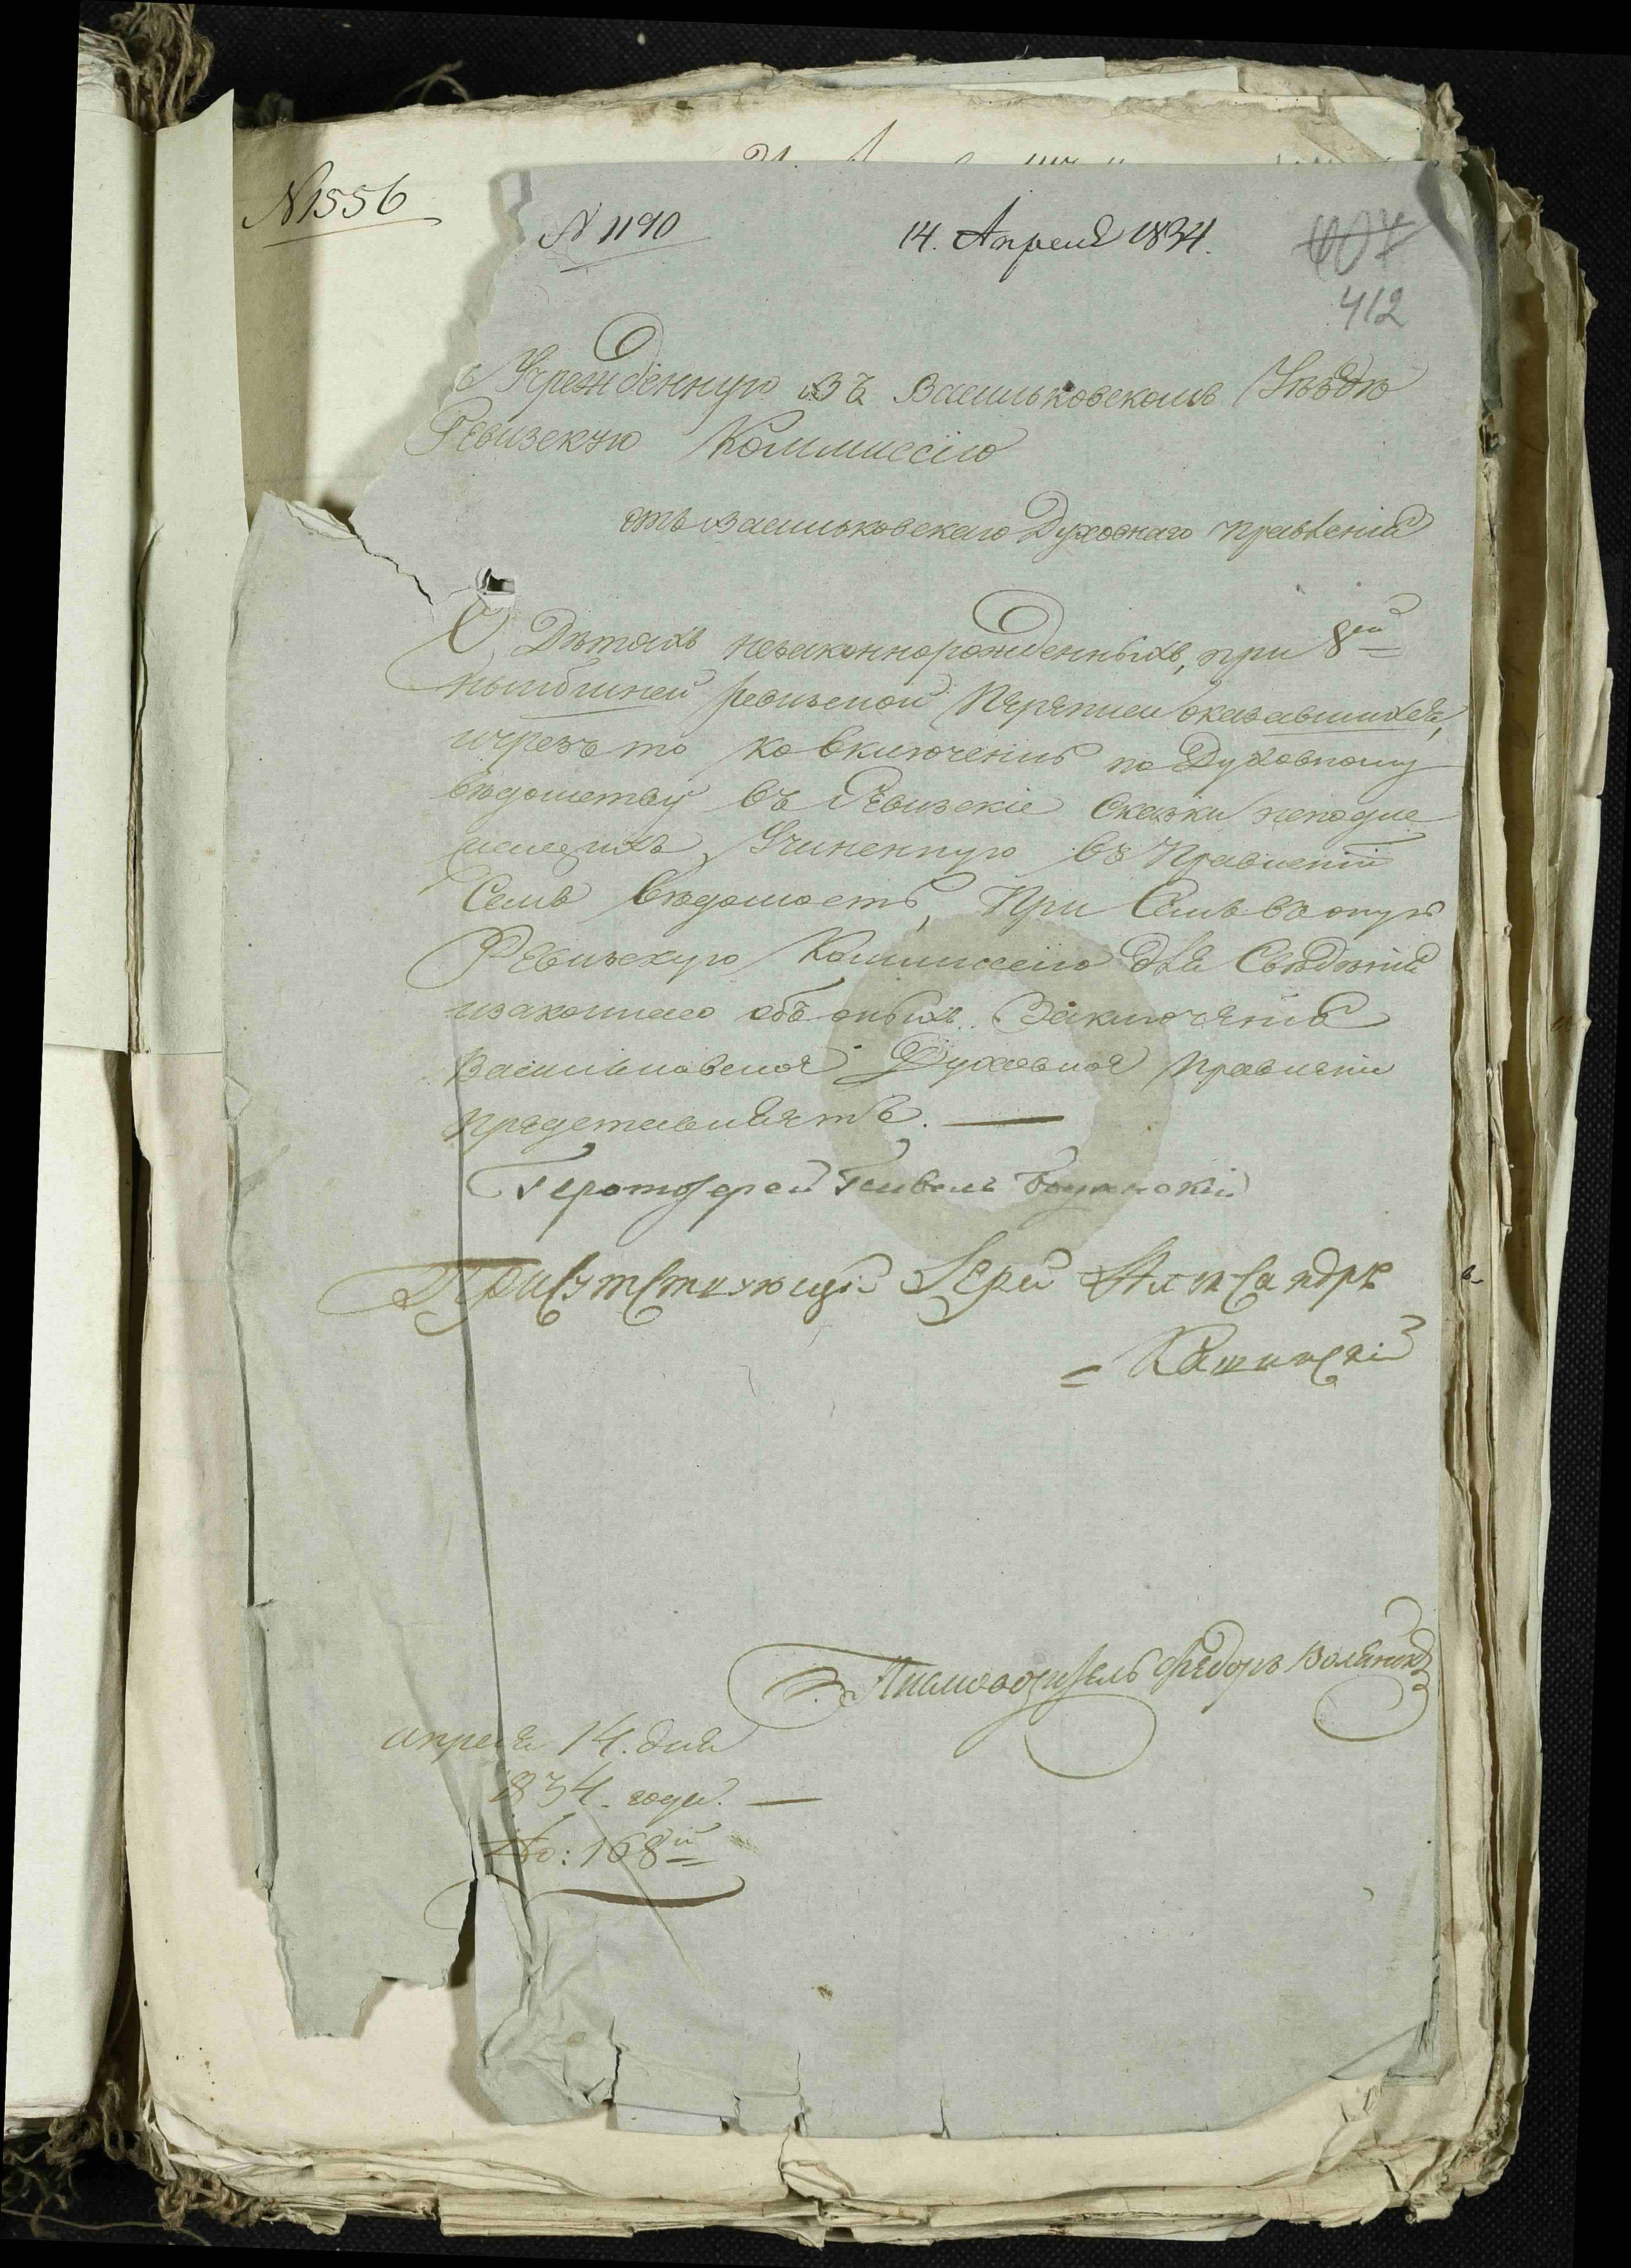 N 1556
N 1190 14. Апреля 1834.
407
412
въ Учрежденную въ Васильковскомъ Уѣздѣ
Ревизскую Коммиссію
отъ Васильковскаго Духовнаго правленія
О Дѣтяхъ незаконнорожденныхъ, при 8ей
нынѣшней ревизской Переписи оказавшихся,
ичрезъ то ко включенію по Духовному
вѣдомству въ Ревизскіе Сказки неподле
жащихъ, Учиненную въ Правленіи
Семъ вѣдомость, При Семъ въ оную
Ревизскую Коммиссію для Свѣдѣнія
изаконнаго объ оныхъ Заключенія
Васильковское Духовное Правленіе
представляетъ.
Протоіерей Павелъ
Присутствующій Іерей Александръ
Письмоводитель Федоръ
апреля 14. дня
1834. года.
No: 168й